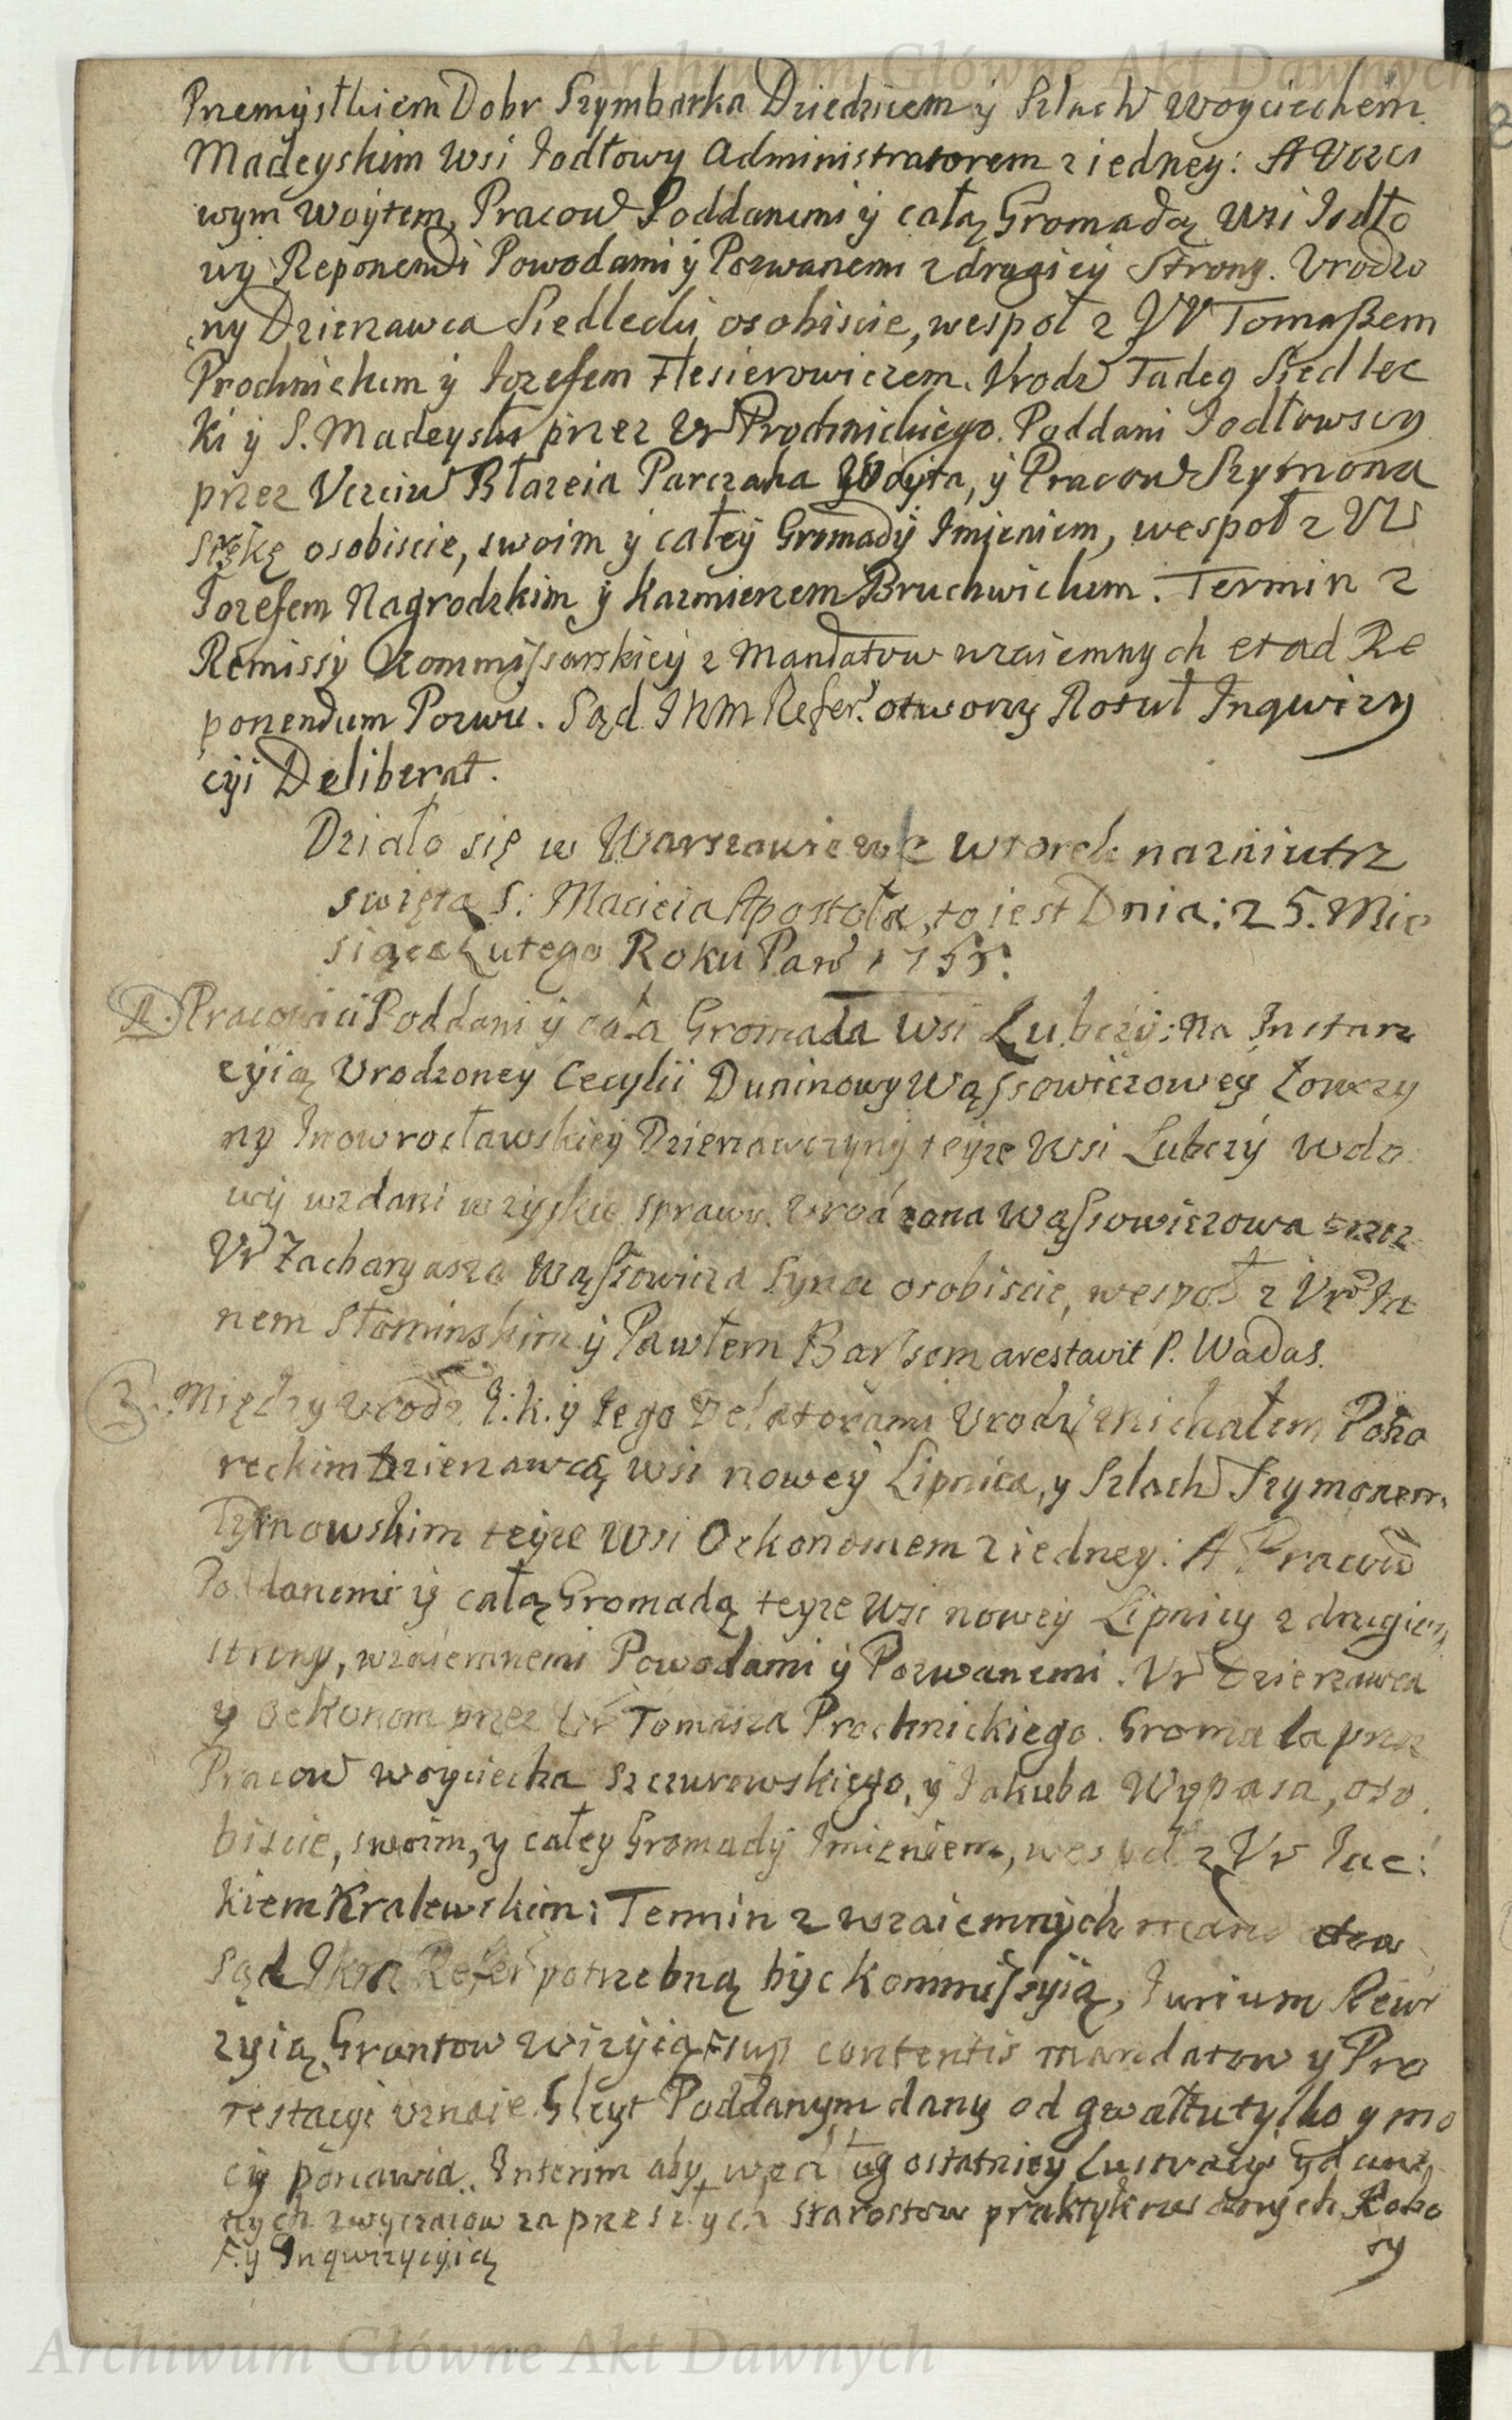 Archiwum Główne Akt Dawnych
Przemysłkiem Dobr Szymbarka Dziedzicem ÿ Szlach Woyciechem
Madeyskim wsi Jodłowy Administratorem z iedney: A Vczci
wym Woytem, Pracow Poddanemi ÿ całą Gromadą wsi Jodło
wy Reponendi Powodami ÿ Pozwanemi z drugiey Strony. Vrodzo
ny Dzierzawca Siedlecki osobiscie, wespoł z VV Tomaszem
Prochnickim ÿ Jozefem Flesierowiczem. Vrodz Tadeg Siedlec
ki ÿ S. Madeyski przez Vr Prochnickiego. Poddani Jodłowscy
przez Vczciw Błazeia Parczaka Woyta, ÿ Pracow Szymona
osobiscie, swoim ÿ całeÿ Gromadÿ Imieniem, wespoł z VV
Jozefem Nagrodzkim ÿ Kazmierzem Bruchwickim. Termin z
Remissÿ Kommissarskieÿ z Mandatow wzaiemnych et ad Re
ponendum Pozwu. Sąd JKM Refer. otworzÿ Rotuł Inqwizy
cÿi Deliberat.
Działo się w Warszawie we wtorek nazaiutrz
swięta S: Macieia Apostoła, to iest Dnia: 25. Mie
siąca Lutego Roku Pań 1755.
2. Pracowici Poddani ÿ cała Gromada wsi Lubczÿ: na Instan
cyią Vrodzoney Cecylii Duninowy Wąssowiczowey Łowczy
ny Inowrocławskieÿ Dzierzawczynÿ teÿze wsi Lubczÿ wdo
wÿ wzdani w zyskie sprawy. Vrodzona Wąssowiczowa przez
Vr Zacharyasza Wąssowicza Syna osobiscie, wespoł z Vr Ja
nem Słominskim ÿ Pawłem Barssem arestavit P. Wadas.
3. Między Vrodz J.K. ÿ Jego Delatorami Vrodz Michałem Poho
reckim Dzierzawcą wsi noweÿ Lipnica, y Szlach Szymonem
Tymowskim teÿze wsi Oekonomem z iedney: A Pracow
Poddanemi ÿ całą Gromadą teyze wsi noweÿ Lipnicy z drugiey
strony, wzaiemnemi Powodami ÿ Pozwanemi. Vr Dzierzawca
y Oekonom przez Vr Tomasza Prochnickiego. Gromada przez
Pracow Woyciecha Szczurowskiego, ÿ Jakuba Wypasa, oso
biscie, swoim, y całey Gromadÿ Imieniem, wespoł z Vr Jac:
kiem Kralewskim: Termin z wzaiemnych mandatow
Sąd JKM Refer potrzebną bÿc Kommissyią, Jurium Rewi
zyią, Gruntow wizÿią F sup contentis mandatow ÿ Pro
testacyi uznaie Gleyt Poddanym dany od gwałtu tylko y mo
cy ponawia. Interim aby ostatniey Lustracyi
nych zwyczaiow za przeszłych Starostow praktykowanych Robo
F. ÿ Inqwizycyią
ty
Archiwum Główne Akt Dawnych